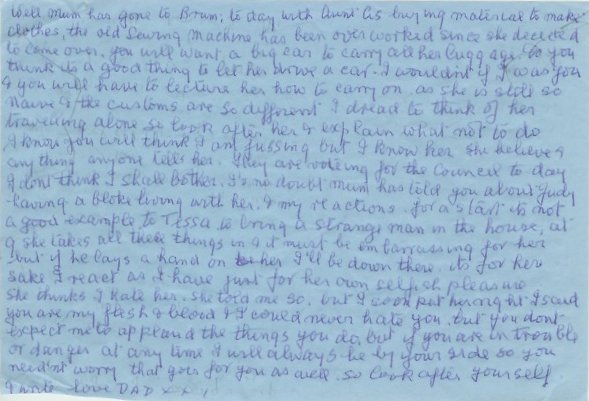 Well Mum has gone to Brum; to day with Aunt Cis buying material to make
clothes, the old sewing machine has been over worked since she decided
to come over. you will want a big car to carry all her luggage. Do you
think its a good thing to let her drive a car. I wouldn't if I was you
& you will have to lecture her how to carry on. as she is still so
naive & the customs are so different I dread to think of her
travelling alone so look after her & explain what not to do
I know you will think I am fussing but I know her she believes
anything anyone tells her. They are voting for the Council to day
I dont think I shall bother. I's no doubt mum has told you about Judy
having a bloke living with her. & my reactions. for a start its not
a good example to Tessa to bring a strange man in the house, at
9 she takes all these things in & it must be embarrassing for her
but if he lays a hand on her I'll be down there. its for her
sake I react as I have just for her own selfish pleasure
she thinks I hate her. she told me so, but I soon put her right I said
you are my flesh & blood & I could never hate you. but you dont
expect me to applaud the things you do, but if you are in trouble
or danger at any time I will always be by your side so you
need'nt worry that goes for you as well. so look after yourself
I write love DAD x x